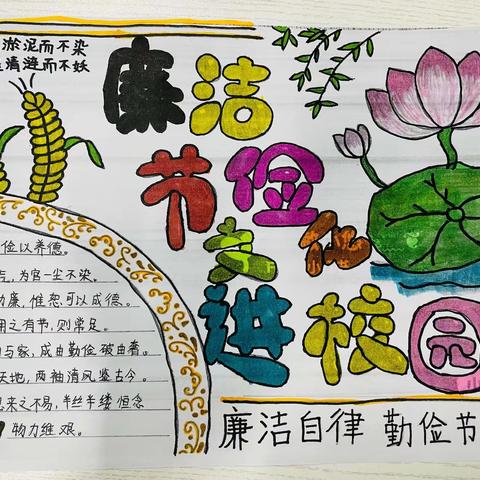 淤泥而不染
清涟而不妖
廉洁
节俭文化
进校园
俭以养德。
为官一尘不染。
廉，惟恕可以成德。
用之有节，则常足。
与家，成由勤俭破由奢。
天地，两袖清风鉴古今。
来之不易，半丝半缕恒念
物力维艰。
廉洁自律 勤俭节